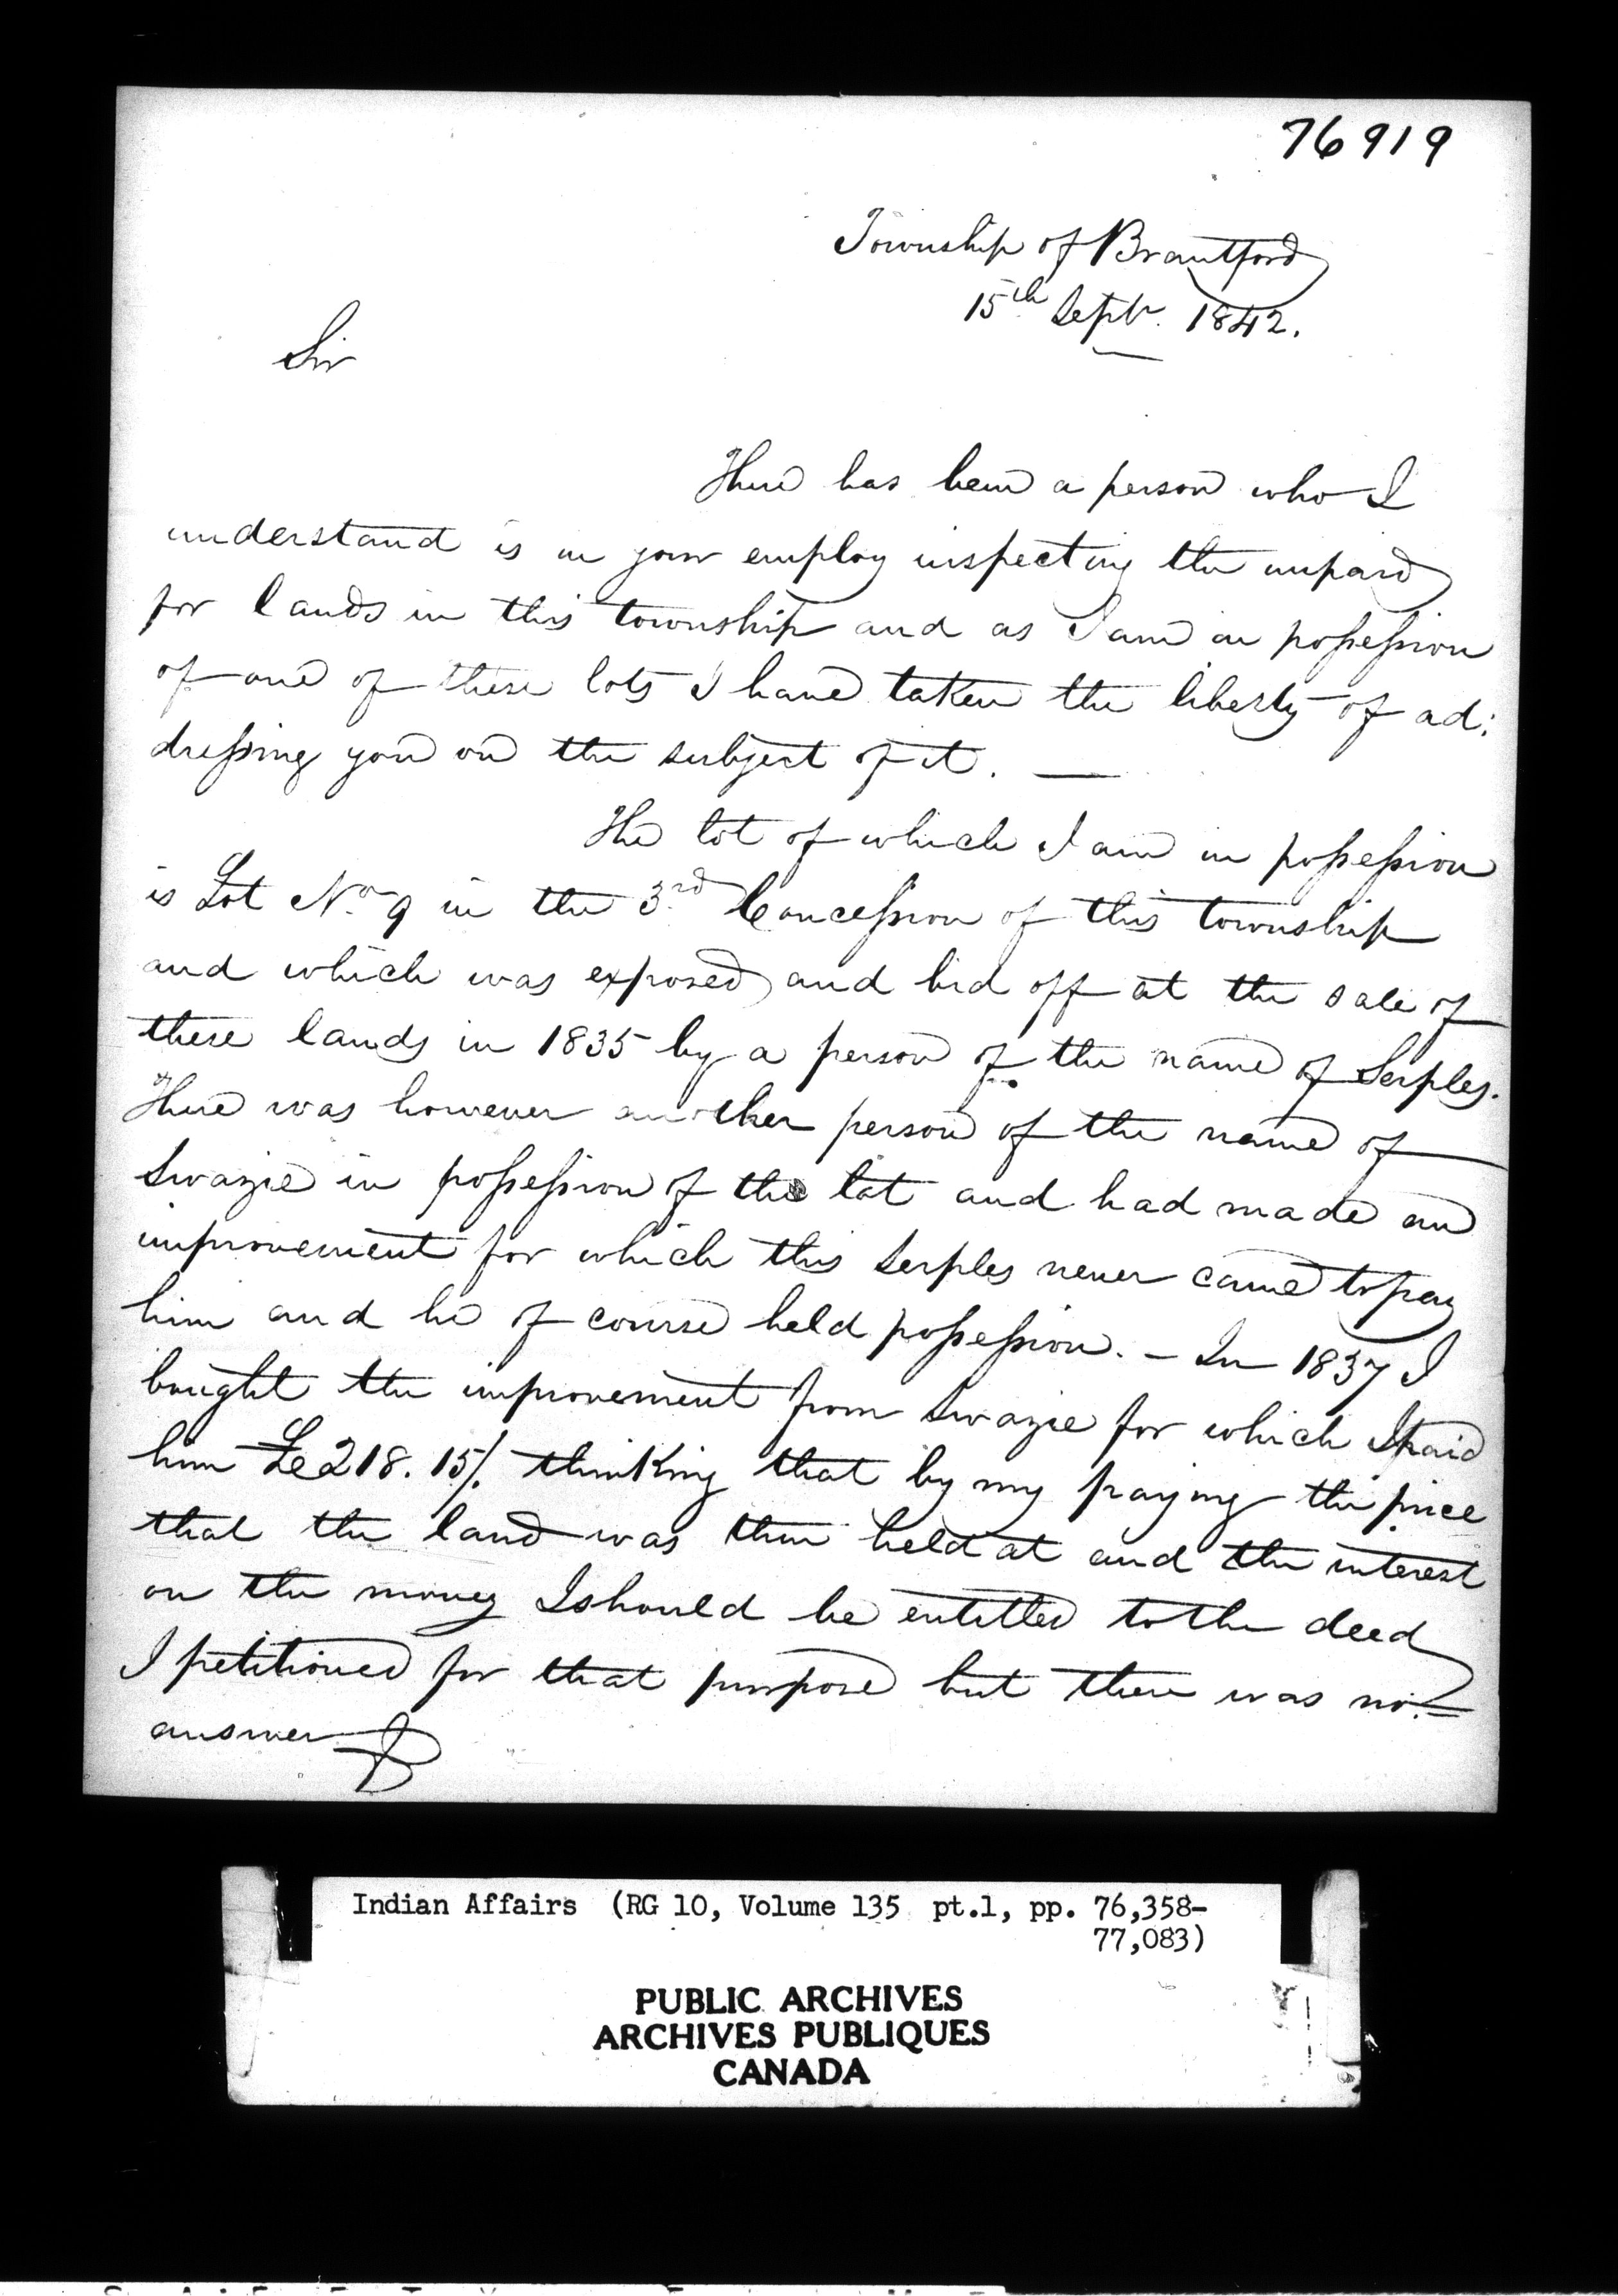 76919
Township of Brantford
15th Septr. 1842.
Sir
There has been a person who I
understand is in your employ inspecting the unpaid
for lands in this township and as I am in possession
of one of these lots I have taken the liberty of ad:
dressing you on the subject of it. —
The lot of which I am in possession
is Lot No. 9 in the 3rd Concession of this township
and which was exposed and bid off at the sale of
these lands in 1835 by a person of the name of Serples.
There was however another person of the name of
Swazie in possession of the lot and had made an
improvement for which this Serples never came to pay
him and he of course held possession. – In 1837 I
bought the improvement from Swazie for which I paid
him £218.15/. thinking that by my paying the price
that the land was then held at and the interest
on the money I should be entitled to the deed
I petitioned for that purpose but there was no =
answer
Indian Affairs (RG 10, Volume 135 pt.1, pp. 76,358-
77,083)
PUBLIC ARCHIVES
ARCHIVES PUBLIQUES
CANADA